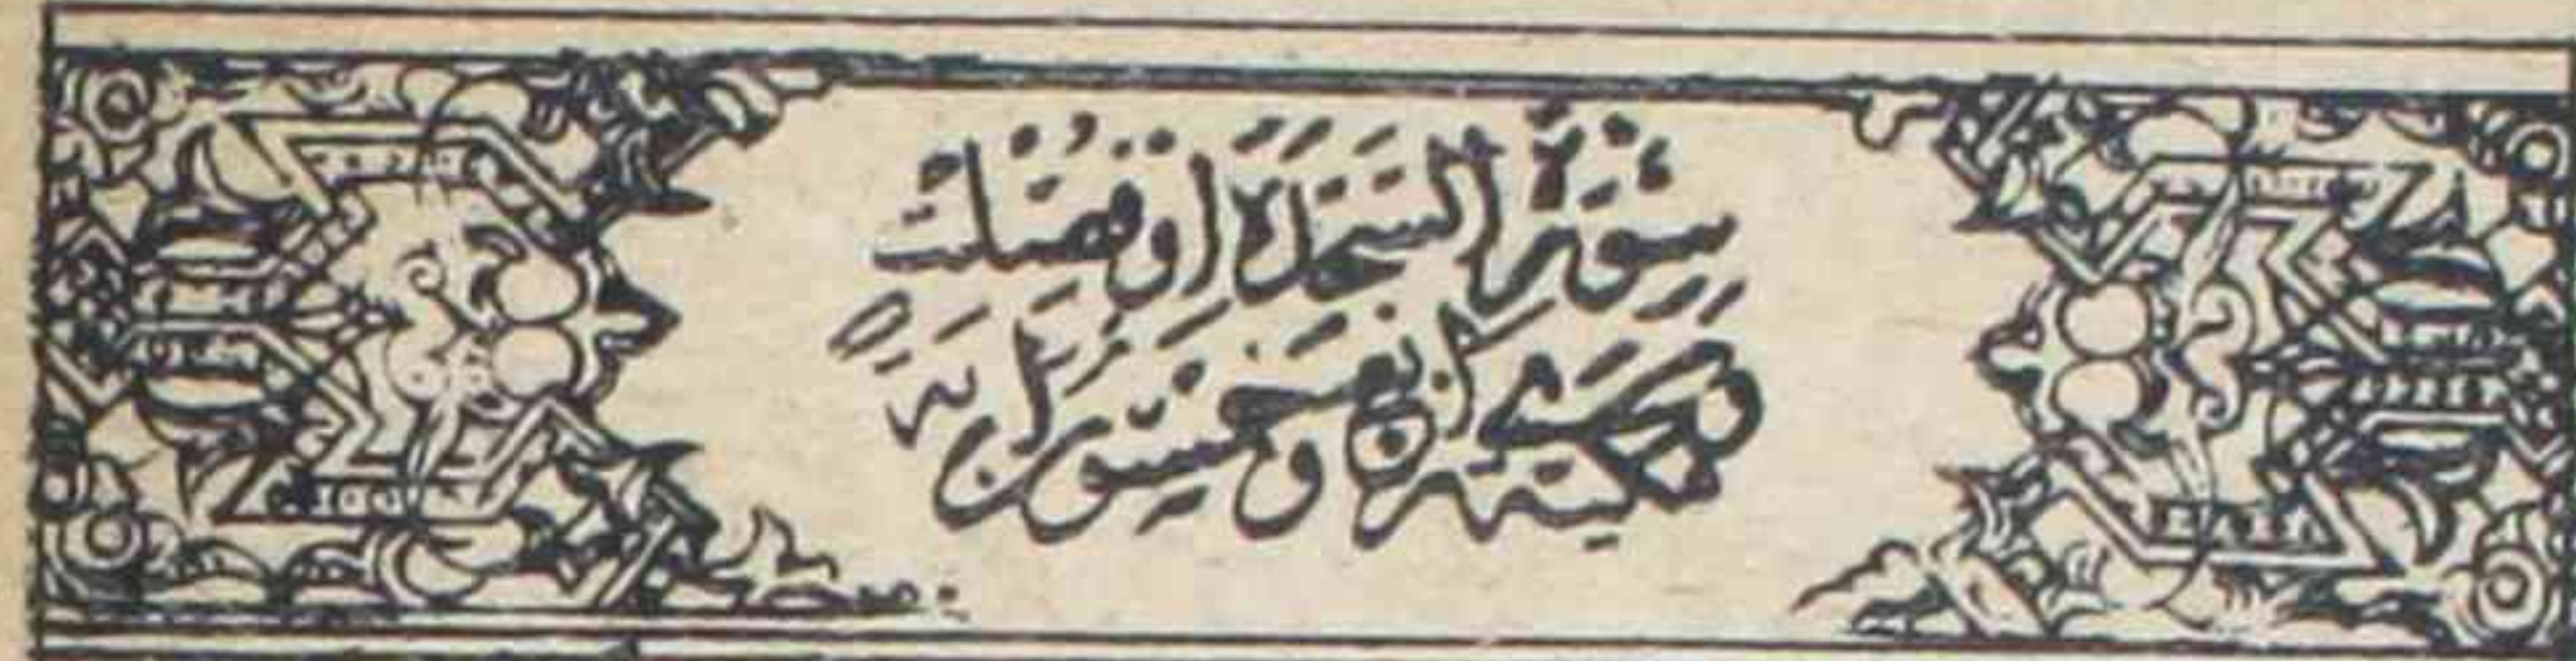 سُوْرَةُ السَّجْدَةِ اَوْ فُصِّلَتْ
مَكِّيَّةٌ وَهِيَ اَرْبَعٌ وَخَمْسُوْنَ اٰيَةً